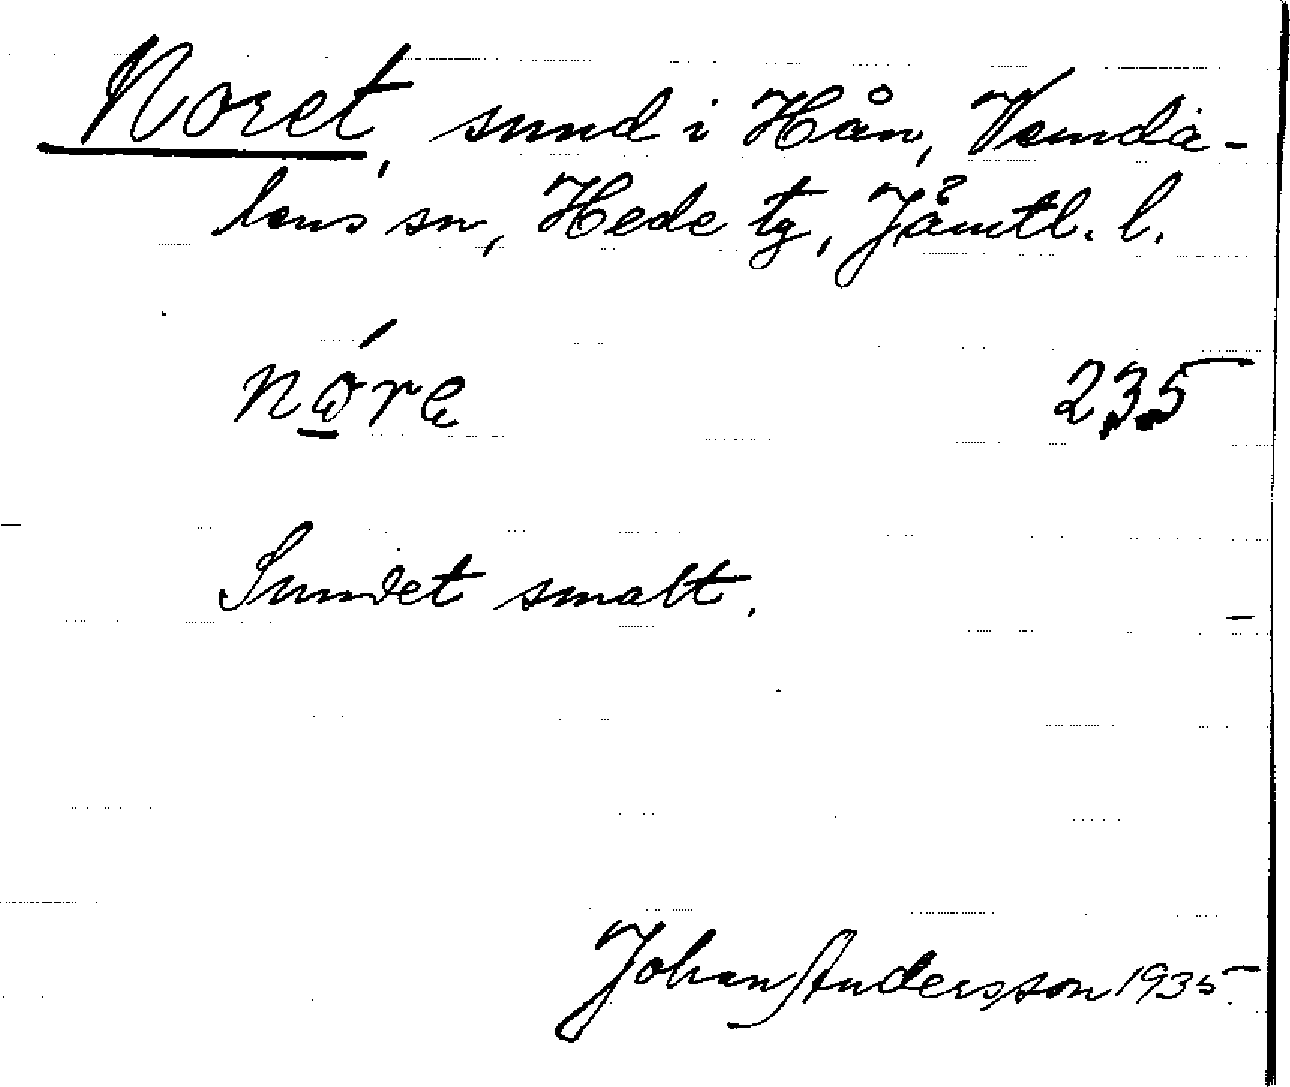 Noret, sund i Hån, Vemda-
lens sn, Hede tg, Jämtl. l.
nǫ́rę 235
Sundet smalt.
Johan Andersson 1935